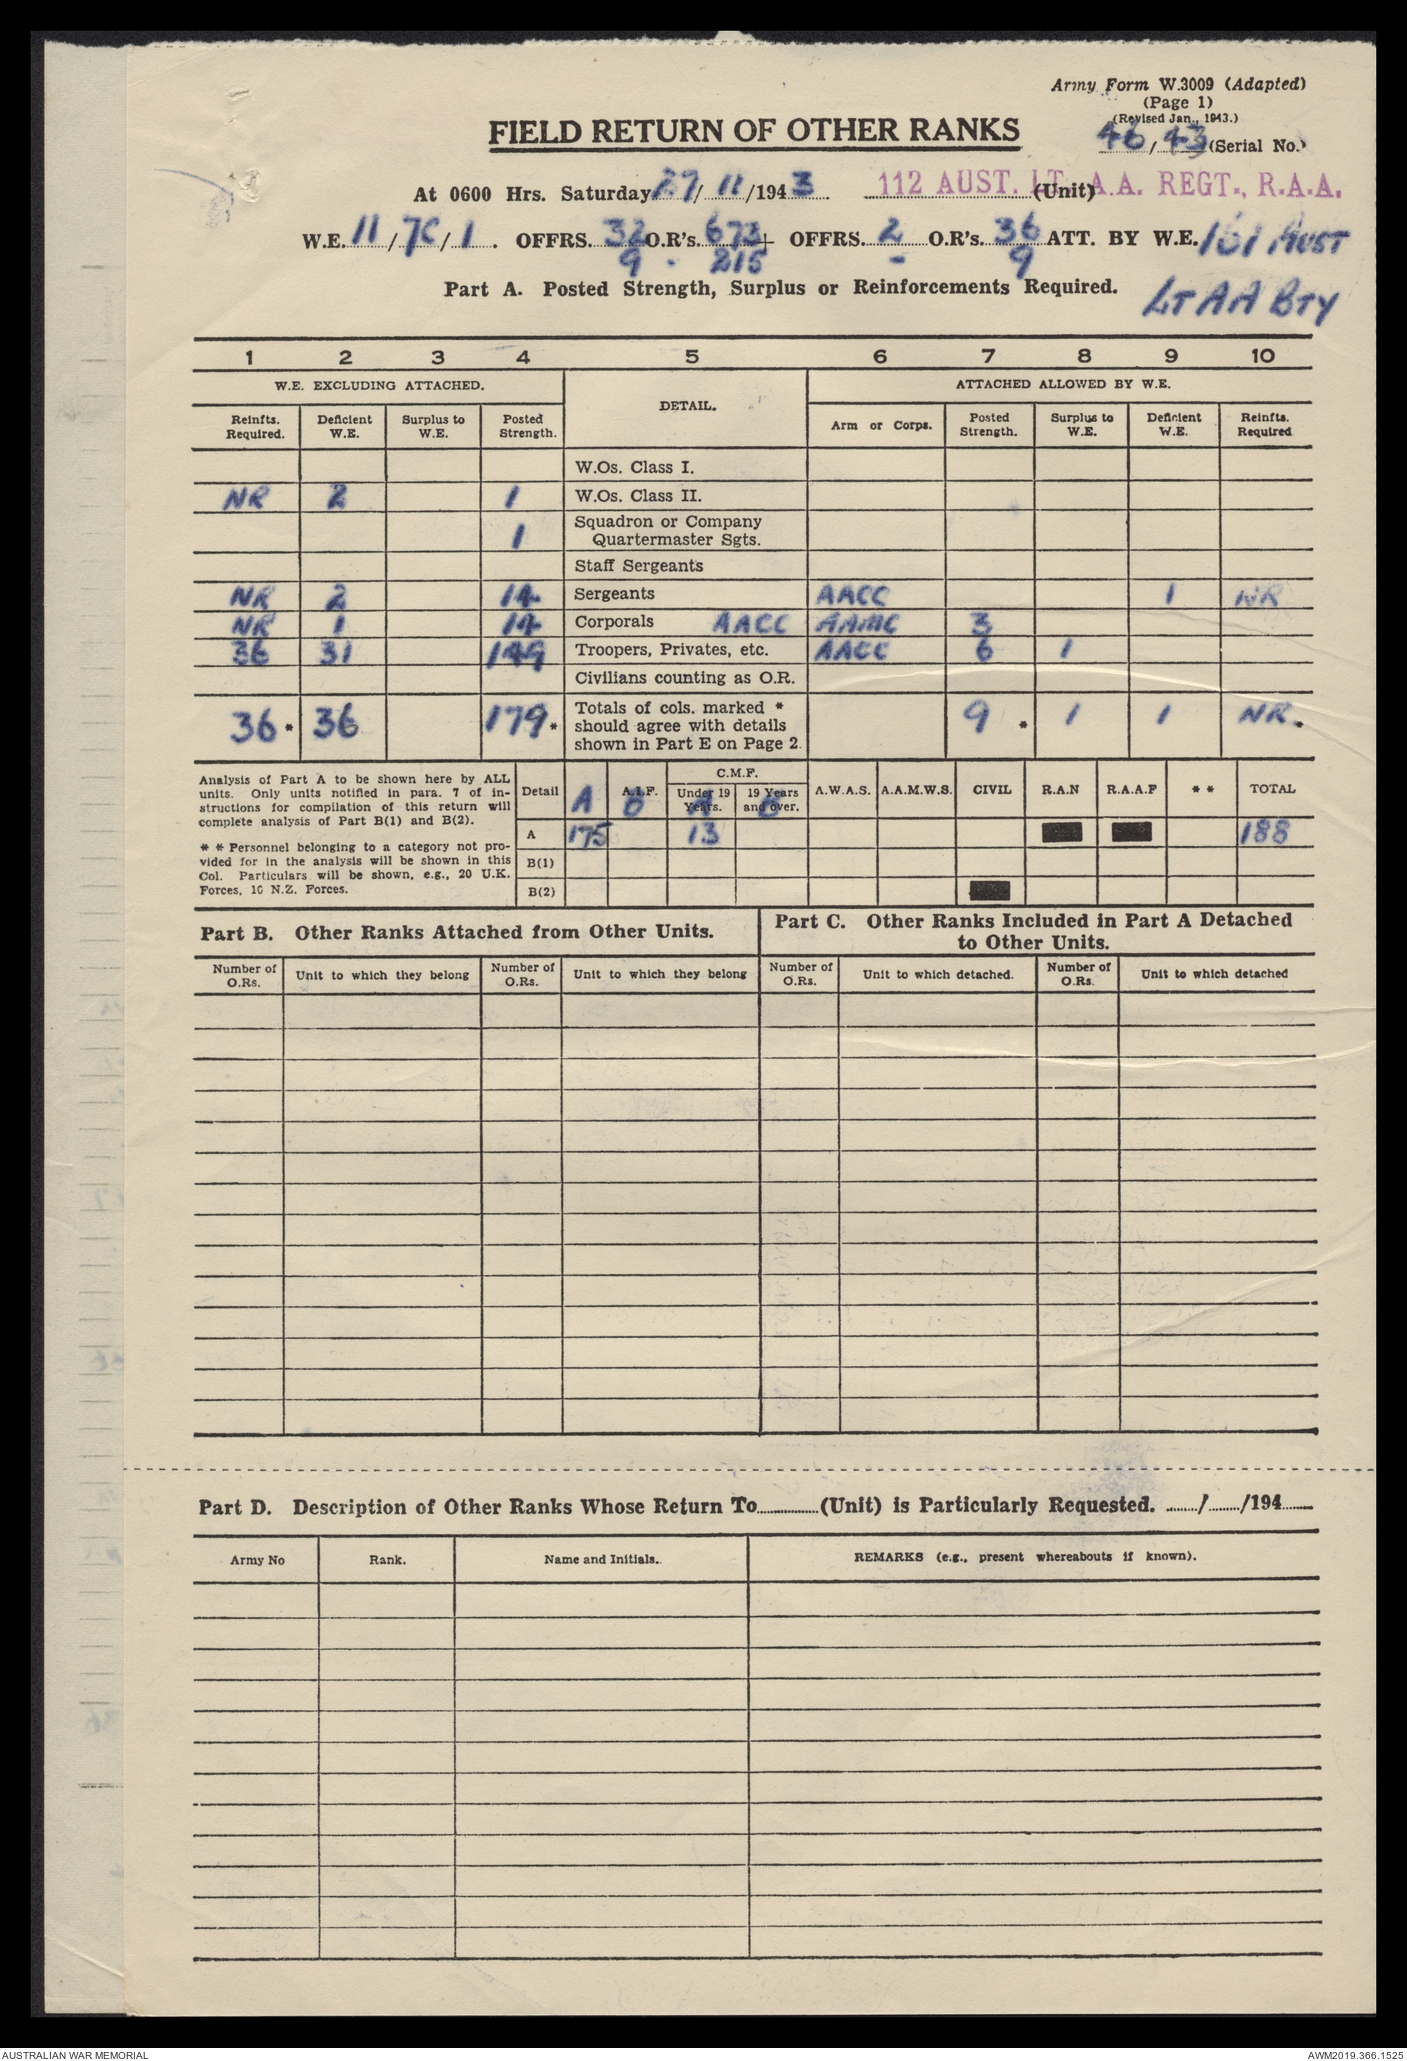 Army Form W.3009 (Adapted)
(Page 1)
(Revised Jan., 1943.)
FIELD RETURN OF OTHER RANKS
46/43 (Serial No.)
At 0600 Hrs. Saturday 27/11/1943 112 AUST. LT. A.A. REGT., R.A.A. (Unit)
W.E. 11/7C/1. OFFRS. 32 O.R's. 673 + OFFRS. 2 O.R's. 36 ATT. BY W.E. 161 AUST
9 - 215 - 9
Part A. Posted Strength, Surplus or Reinforcements Required. LT AA BTY
1 2 3 4 5 6 7 8 9 10
W.E. EXCLUDING ATTACHED. DETAIL. ATTACHED ALLOWED BY W.E.
Reinfts. Required. Deficient W.E. Surplus to W.E. Posted Strength. Arm or Corps. Posted Strength. Surplus to W.E. Deficient W.E. Reinfts. Required
W.Os. Class I.
NR 2 1 W.Os. Class II.
1 Squadron or Company Quartermaster Sgts.
Staff Sergeants
NR 2 14 Sergeants AACC 1 NR
NR 1 14 Corporals AACC AAMC 3
36 31 149 Troopers, Privates, etc. AACC 6 1
Civilians counting as O.R.
36 * 36 179 * Totals of cols. marked * should agree with details shown in Part E on Page 2. 9 * 1 1 NR *
Analysis of Part A to be shown here by ALL
units. Only units notified in para. 7 of in-
structions for compilation of this return will
complete analysis of Part B(1) and B(2).
* * Personnel belonging to a category not pro-
vided for in the analysis will be shown in this
Col. Particulars will be shown, e.g., 20 U.K.
Forces, 10 N.Z. Forces.
C.M.F.
Detail A A.I.F. B Under 19 Years. A 19 Years and over. B A.W.A.S. A.A.M.W.S. CIVIL R.A.N R.A.A.F * * TOTAL
A 175 13 188
B(1)
B(2)
Part B. Other Ranks Attached from Other Units.
Part C. Other Ranks Included in Part A Detached
to Other Units.
Number of O.Rs. Unit to which they belong Number of O.Rs. Unit to which they belong Number of O.Rs. Unit to which detached. Number of O.Rs. Unit to which detached
Part D. Description of Other Ranks Whose Return To (Unit) is Particularly Requested. / /194
Army No Rank. Name and Initials. REMARKS (e.g., present whereabouts if known).
AUSTRALIAN WAR MEMORIAL AWM2019.366.1525